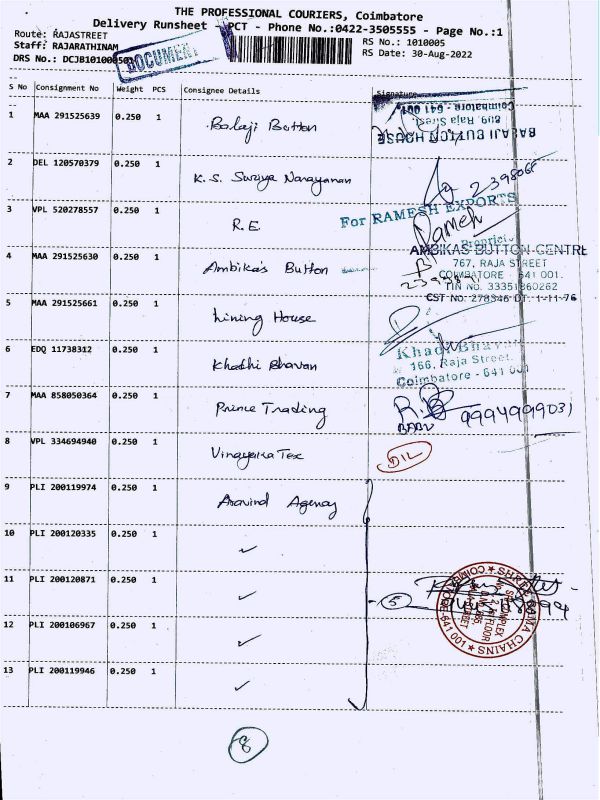 THE PROFESSIONAL COURIERS, Coimbatore
Delivery Runsheet - PCT - Phone No.:0422-3505555 - Page No.:1
Route: RAJASTREET
RS No.: 1010005
Staff: RAJARATHINAM
RS Date: 30-Aug-2022
DRS No.: DCJB101000501
DOCUMENT
S No Consignment No Weight PCS Consignee Details Signature
1 MAA 291525639 0.250 1 Balaji Button
BALAJI BUTTON HOUSE
Coimbatore - 641 001
2 DEL 120570379 0.250 1 K.S. Suriya Narayanan
3 VPL 520278557 0.250 1 R.E.
For RAMESH EXPORTS
Rameh
4 MAA 291525630 0.250 1 Ambika's Button
AMBIKAS BUTTON CENTRE
767, RAJA STREET
COIMBATORE - 641 001.
TIN NO. 33351860262
CST NO. 278346 DT. 1-11-76
5 MAA 291525661 0.250 1 Lining House
6 EDQ 11738312 0.250 1 Khadhi Bhavan
Khadi Bhavan
166, Raja Street.
Coimbatore - 641 001
7 MAA 858050364 0.250 1 Prince Trading
BABU 9994999031
8 VPL 334694940 0.250 1 Vinayaka Tex
D/L
9 PLI 200119974 0.250 1 Aravind Agency
10 PLI 200120335 0.250 1 ✓
11 PLI 200120871 0.250 1 ✓
5
SHREE RAMA CHAINS
12 PLI 200106967 0.250 1 ✓
13 PLI 200119946 0.250 1 ✓
8